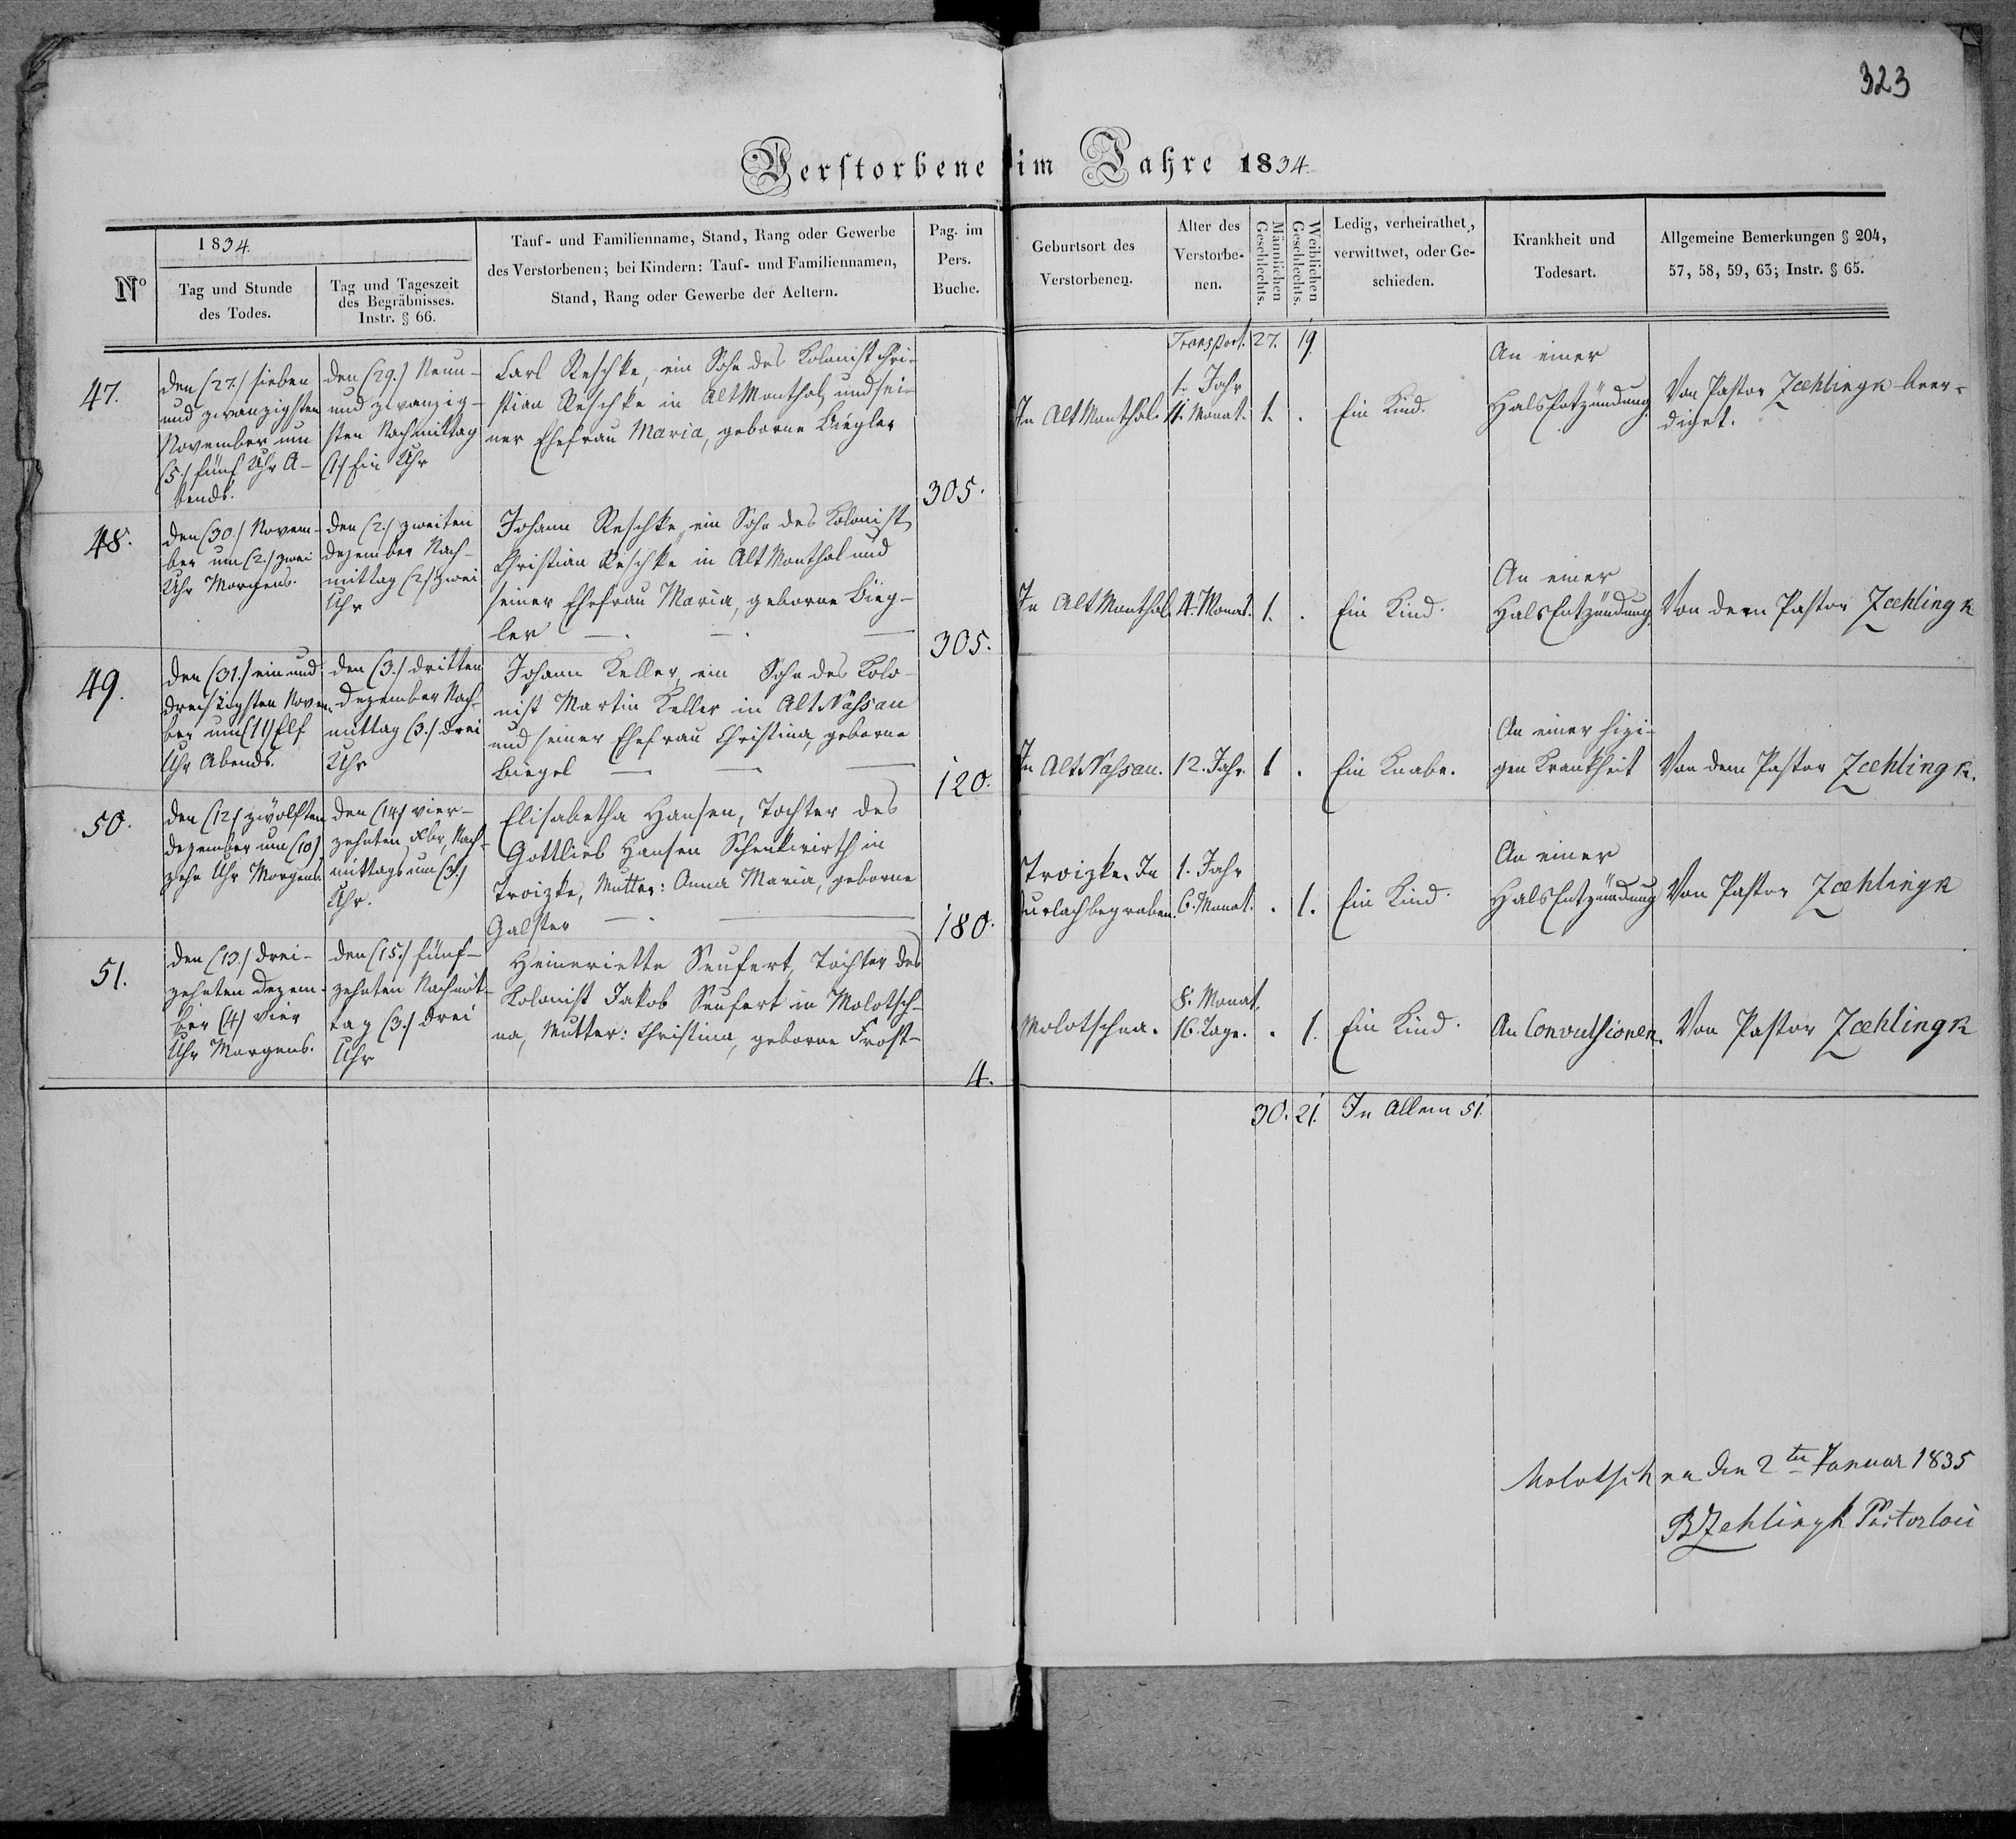 323
Verstorbene im Jahre 1834.
No
1834.
Tag und Stunde
des Todes.
Tag und Tageszeit
des Begräbnisses.
Instr. § 66.
Tauf- und Familienname, Stand, Rang oder Gewerbe
des Verstorbenen; bei Kindern: Tauf- und Familiennamen,
Stand, Rang oder Gewerbe der Aeltern.
Pag. im
Pers.
Buche.
Geburtsort des
Verstorbenen.
Alter des
Verstorbe-
nen.
Männlichen
Geschlechts.
Weiblichen
Geschlechts.
Ledig, verheirathet,
verwittwet, oder Ge-
schieden.
Krankheit und
Todesart.
Allgemeine Bemerkungen § 204,
57, 58, 59, 63; Instr. § 65.
Transport. 27. 19.
47.
den (27.) sieben
und zwanzigsten
November um
(5.) fünf Uhr A-
bends.
den (29.) Neun-
und zwanzig-
sten Nachmittag
(1.) Ein Uhr
Carl Reschke, ein Sohn des Kolonist Chri-
stian Reschke in AltMonthal, und sei-
ner Ehefrau Maria, geborne Biegler
305.
In AltMonthal.
1. Jahr
11. Monat.
1.
.
Ein Kind.
An einer
HalsEntzündung
Von Pastor Zoehlingk beer-
diget.
48.
den (30.) Novem-
ber um (2.) zwei
Uhr Morgens.
den (2.) zweiten
Dezember Nach-
mittag (2) zwei
Uhr
Johann Reschke, ein Sohn des Kolonist
Christian Reschke in AltMonthal und
seiner Ehefrau Maria, geborne Bieg-
ler
305.
In AltMonthal.
4. Monat.
1.
.
Ein Kind.
An einer
HalsEntzündung
Von dem Pastor Zoehlingk
49.
den (31.) ein und
dreisigsten Novem-
ber um (11) Elf
Uhr Abends.
den (3.) dritten
Dezember Nach-
mittag (3.) drei
Uhr
Johann Keller, ein Sohn des Kolo-
nist Martin Keller in AltNassau
und seiner Ehefrau Christina, geborne
Biegel
120.
In AltNassau.
12. Jahr.
1
.
Ein Knabe.
An einer hizi-
gen Krankheit
Von dem Pastor Zoehlingk.
50.
den (12) zwölften
Dezember um (10)
zehn Uhr Morgens.
den (14) vier-
zehnten Xbr, Nach-
mittags um (3.)
Uhr.
Elisabetha Hansen, Tochter des
Gottlieb Hansen Schenkwirth in
Troizke, Mutter: Anna Maria, geborne
Galster
180.
Troizke. In
urlach begraben.
1. Jahr
6. Monat.
.
1.
Ein Kind.
An einer
HalsEntzündung
Von Pastor Zoehlingk
51.
den (13.) drei-
zehnten Dezem-
ber (4) vier
Uhr Morgens.
den (15.) fünf-
zehnten Nachmit-
tag (3.) drei
Uhr
Heinriette Seufert, Tochter des
Kolonist Jakob Seufert in Molotsch-
na, Mutter: Christina, geborne Frost-
4.
Molotschna.
8. Monat,
16. Tage.
.
1.
Ein Kind.
An Convulsionen.
Von Pastor Zoehlingk
30. 21. In Allem 51.
Molotschna den 2ten Januar 1835
Zehlingk Pastor loci